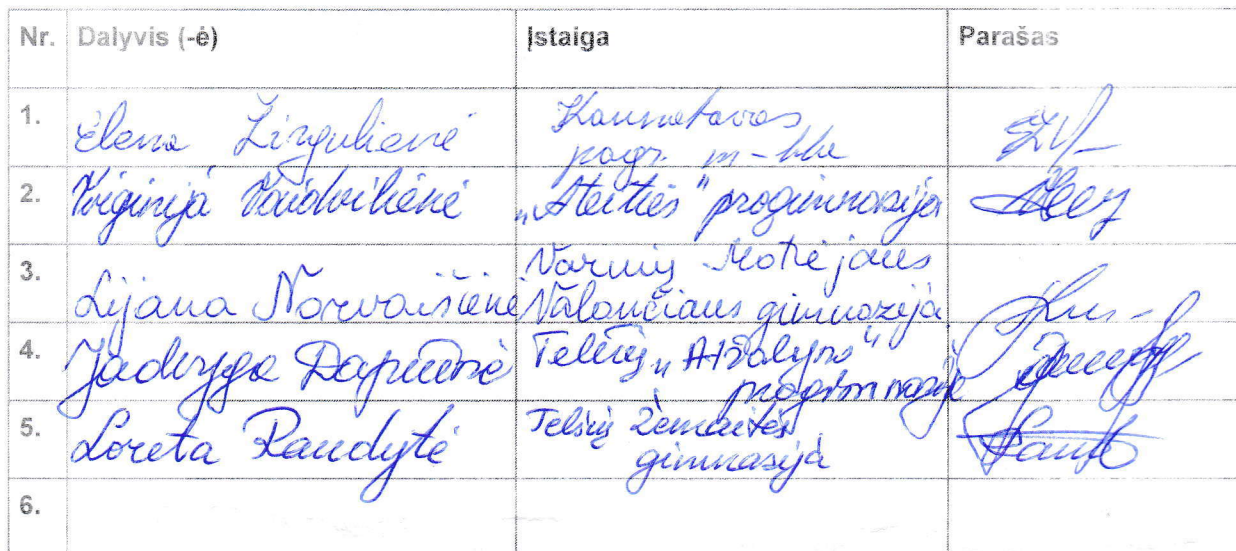 Nr. Dalyvis (-ė) Įstaiga Parašas
1. Elena Žirgulienė Kaunatavos
pagr. m-kla
2. Virginija Vaidvilienė „Ateities" progimnazija
3. Lijana Norvaišienė Varnių Motiejaus
Valančiaus gimnazija
4. Jadvyga Telšių „Atžalyno"
progimnazija
5. Loreta Raudytė Telšių Žemaitės
gimnazija
6.